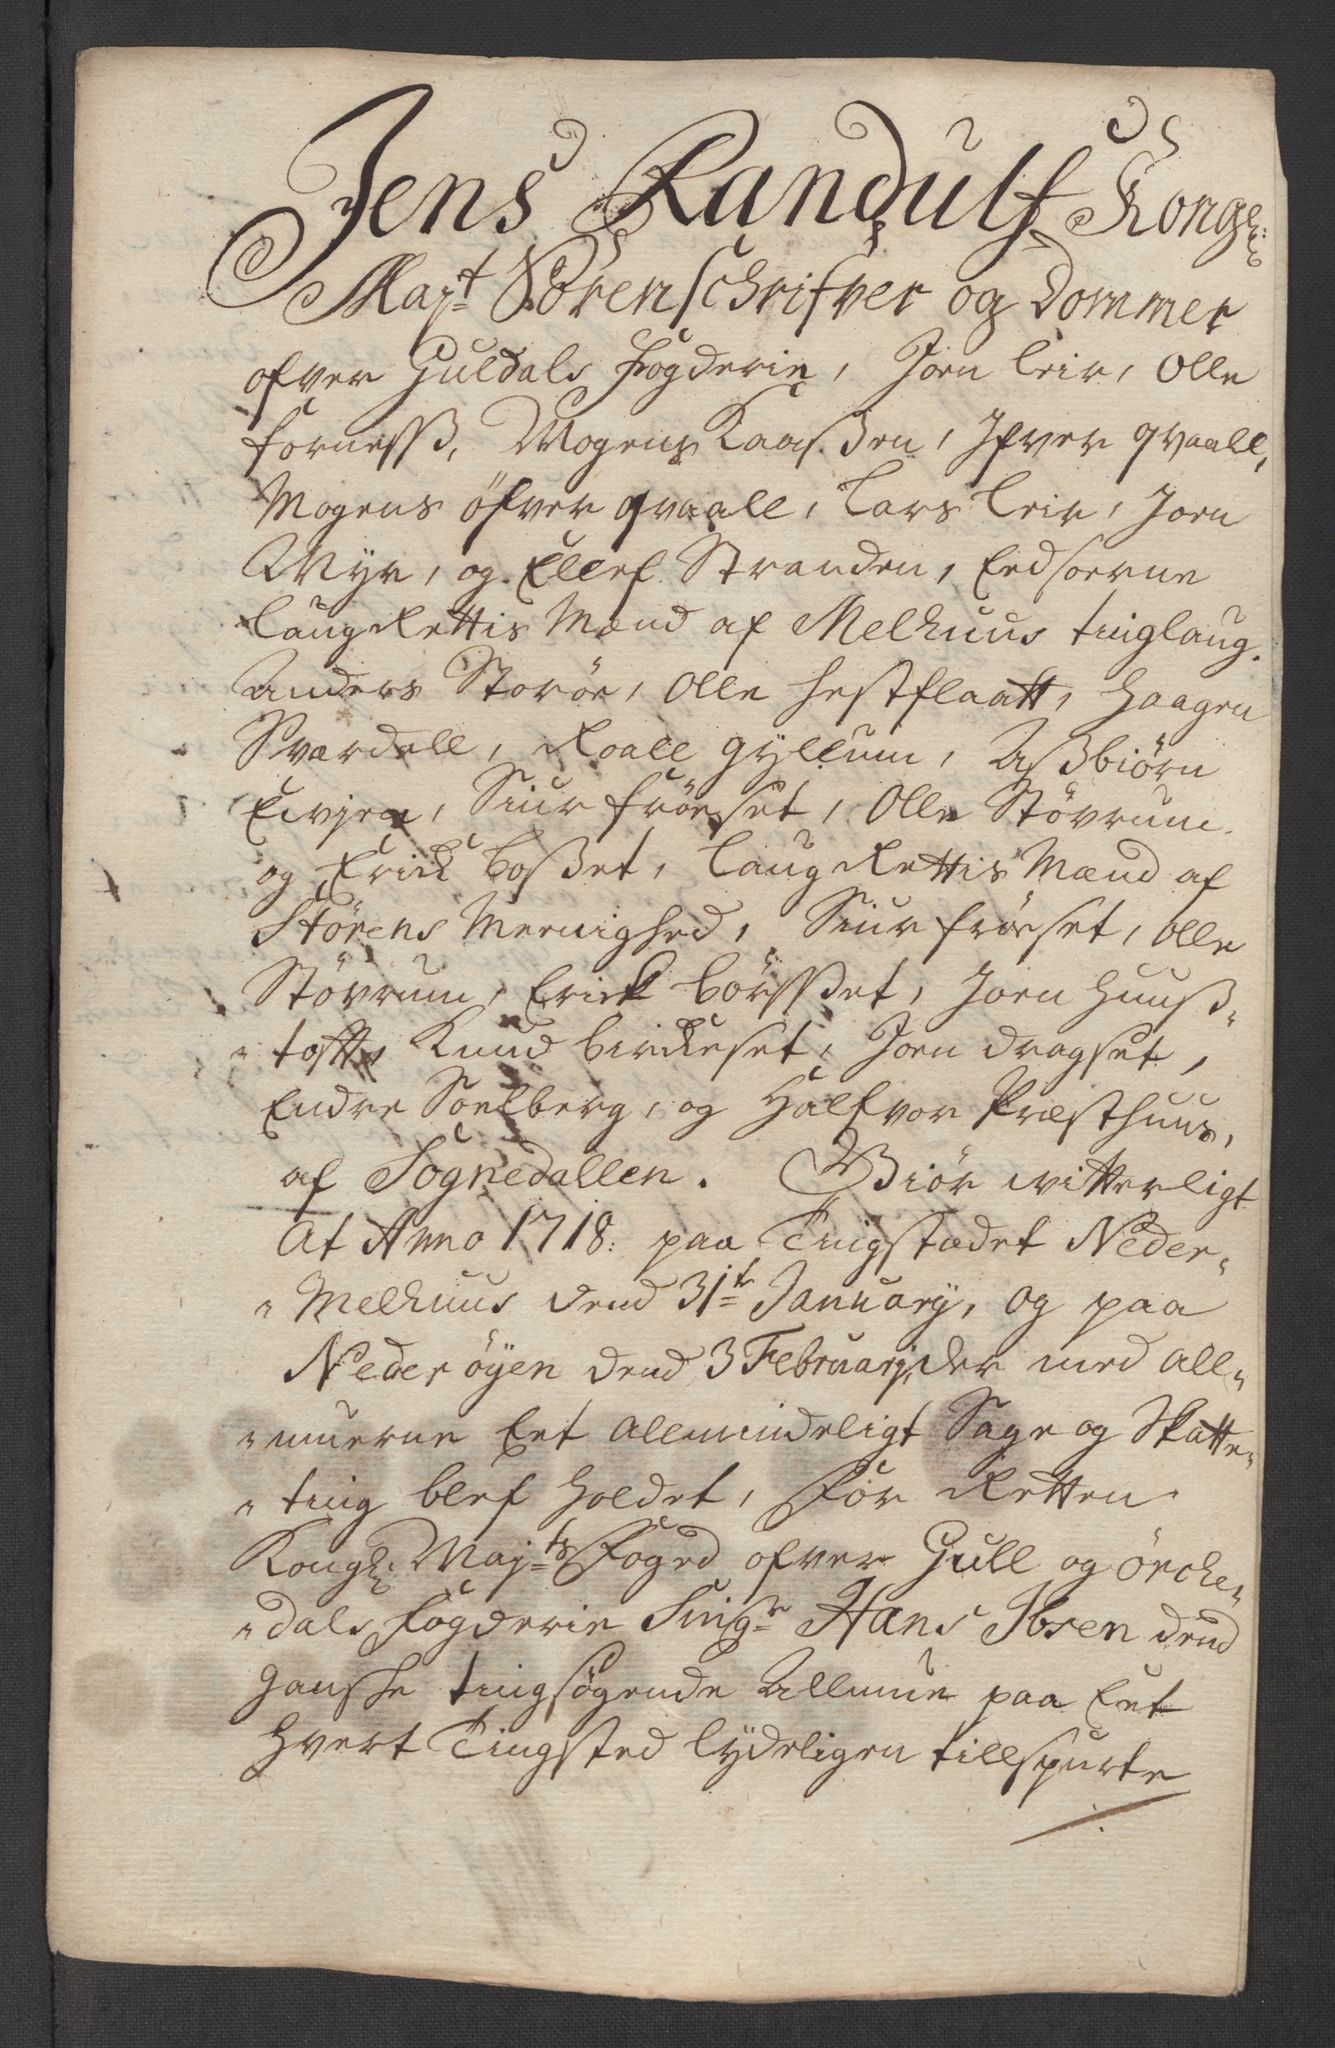 Jens Randulf Kongl:
Maj:t Sorenschrifver og Dommer
ofver Guldals Fogderie, Joen Leir, Olle
Fornesß, Mogens Kaaßen, Ifver Qvaall,
Mogens öfver Qvaall, Lars Leir, Joen
Myr, og Ellef Stranden, Eedsorne
LaugRettis Mænd af Melhuus tinglaug.
Anders Storöe, Olle Hestflaatt, Haagen
Sværdall, Roall Gyllum, Aßbiörn
Siur Fröeset, Olle Støvrum
og Erick Boßet, LaugRettis Mænd af
Størens Menighed, Siur Fröeset, Olle
Støvrum, Erick Börsßet, Joen Huuß-
-tofft, Knud Birckeset, Joen Dragset,
Endre Soelberg, og Halfvor Præsthuus,
af Sognedallen. Giör witterligt
At Anno 1718. paa Tingstædet Neder-
-Melhuus dend 31te January, og paa
Nederøyen dend 3 February, der med All-
-muerne Eet Allmindeligt Sage og Skatte-
-ting blef holdet, For Retten
Kongl: Maj:ts Foged ofver Gull og Örcke-
-dals Fogderie Sing:r Hans Ibsen dend
gandske tingsøgende Allmue paa Eet
hvert Tingsted lydeligen tillspurte